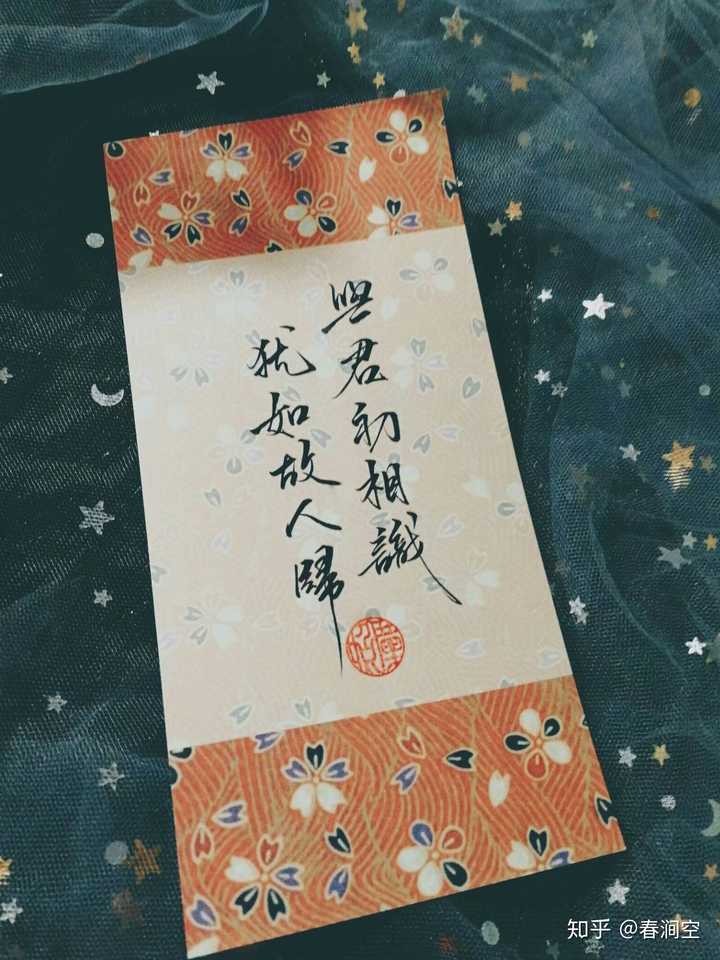 與君初相識
猶如故人歸
知乎 @春涧空